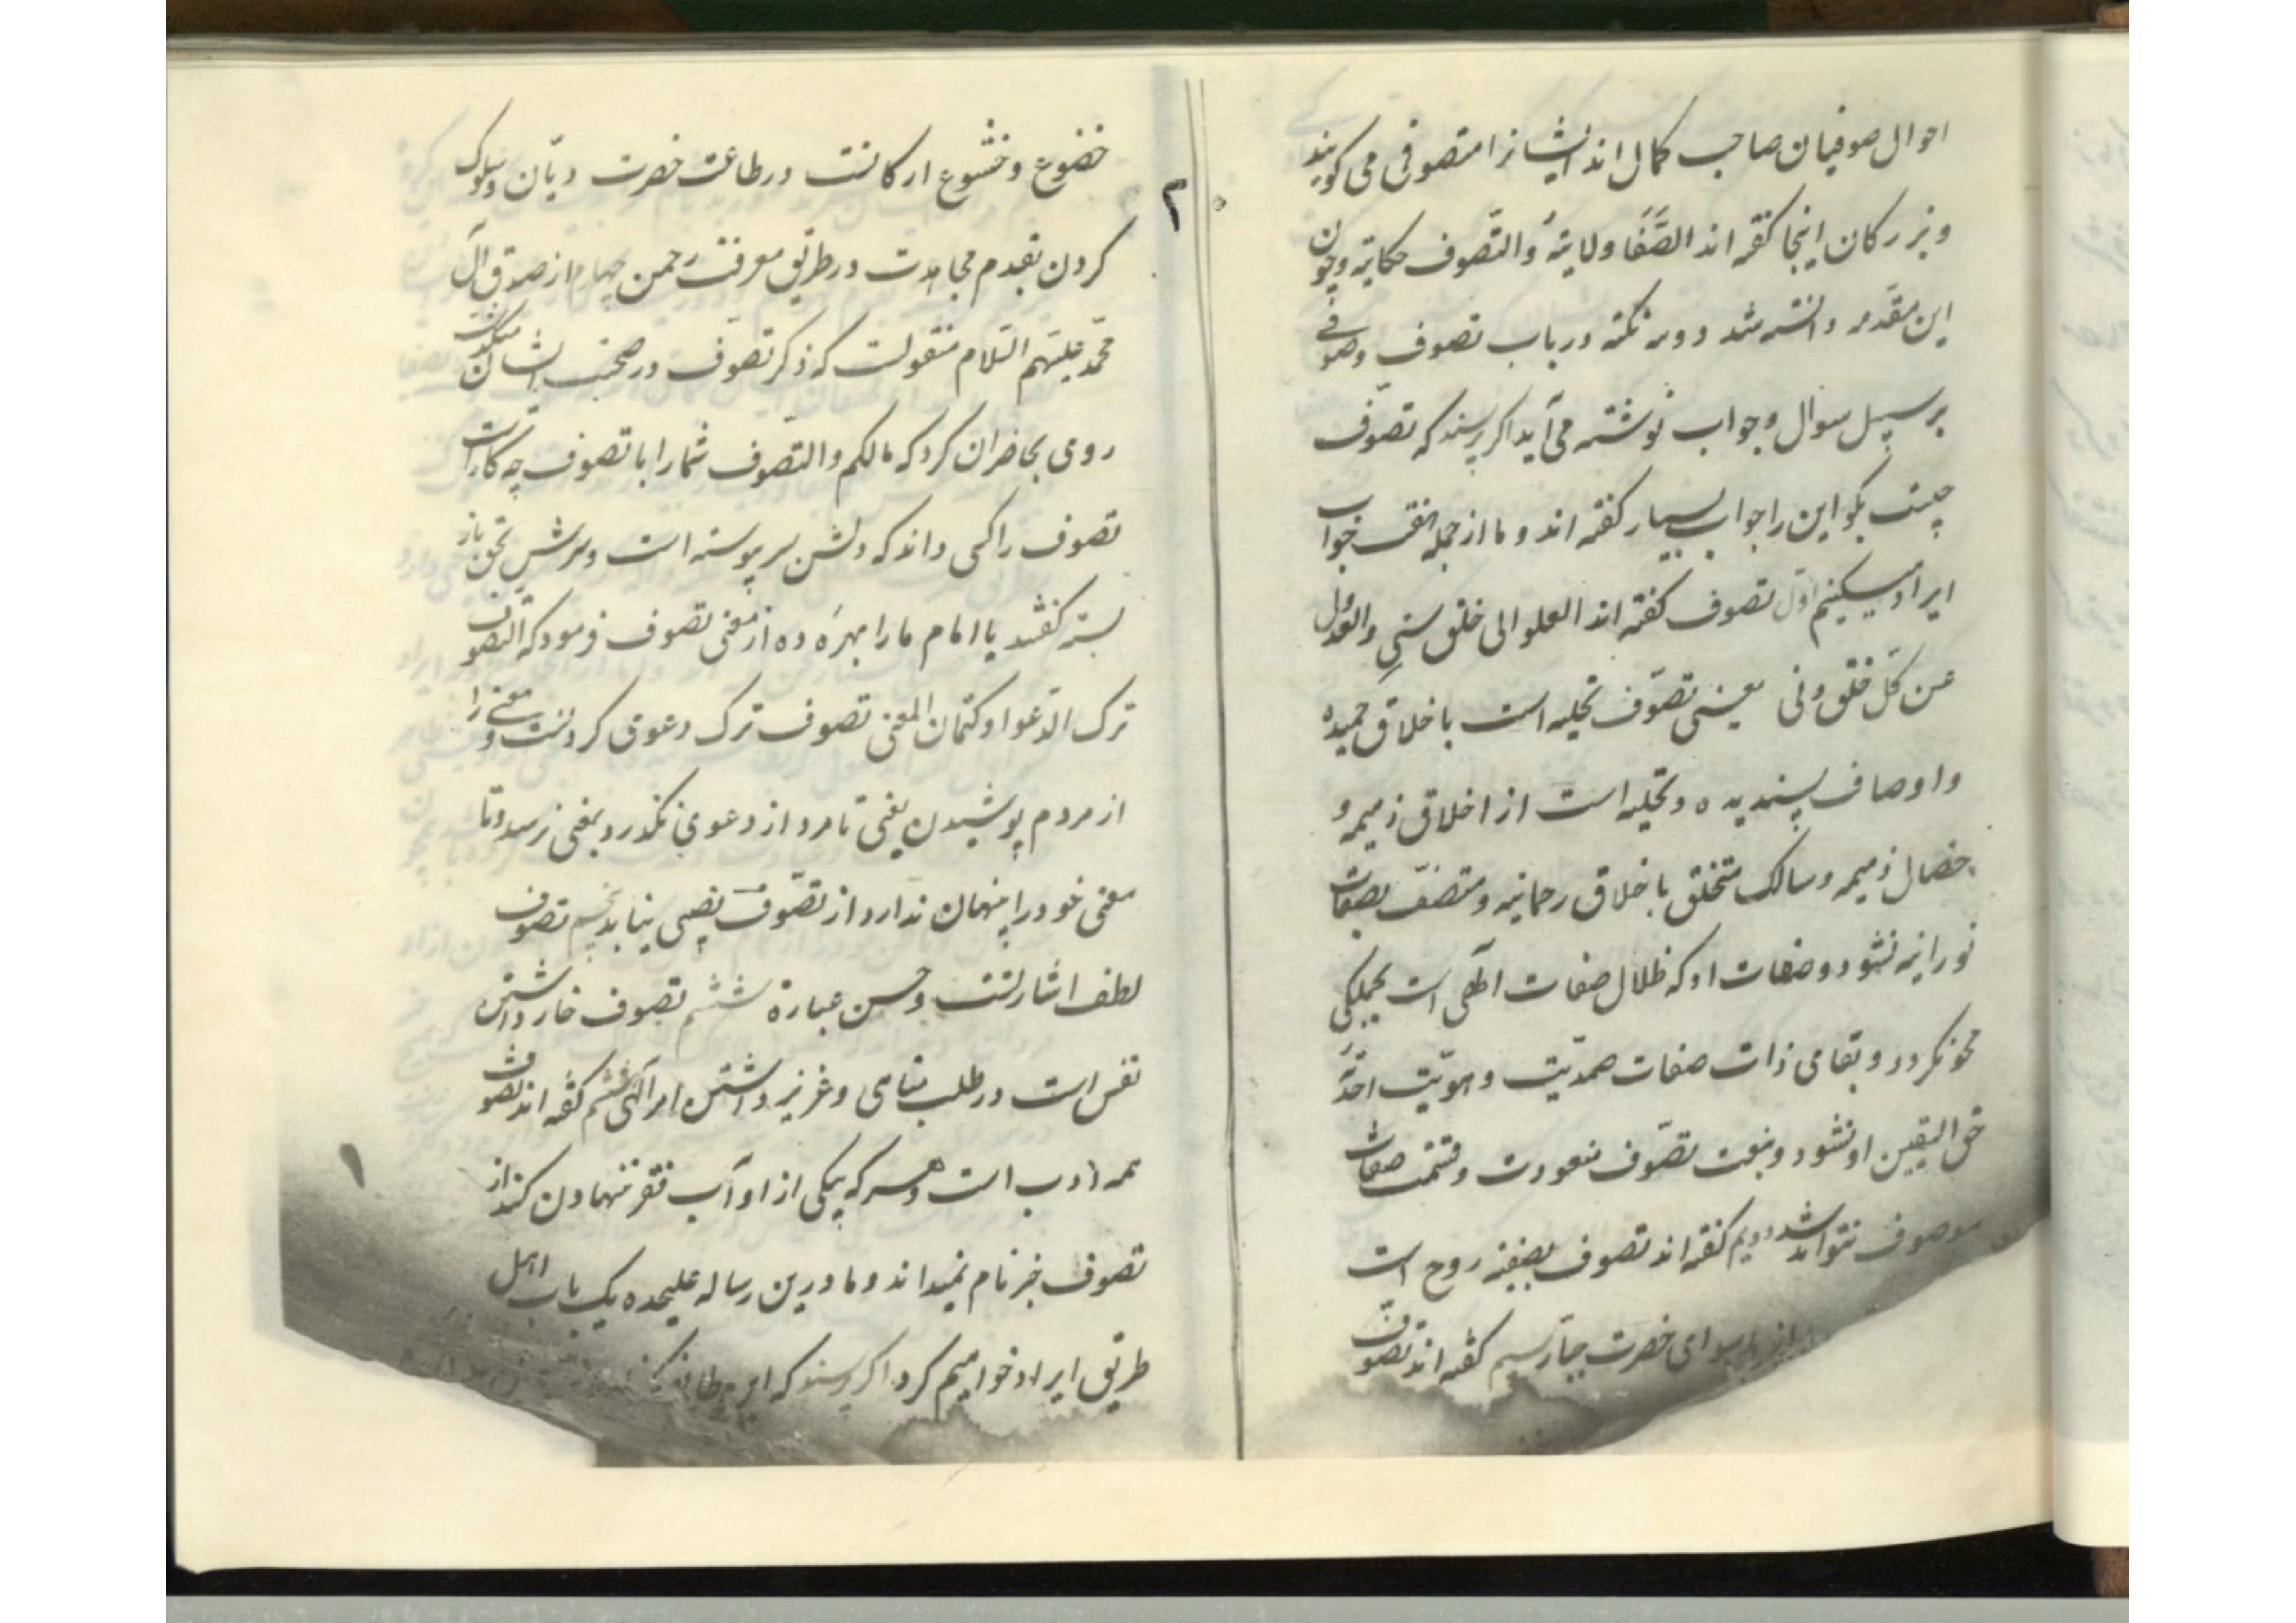 احوال صوفیان صاحب کمال اند ایشانرا متصوفی می کویند
و بزرکان اینجا کفته اند الصَّفَا ولایةٌ والتّصوف حکایة و چون
این مقدّمه دانسته شد دو سه نکته در باب تصوف و صوفی
بر سبیل سوال و جواب نوشته می آید اکر پرسند که تصوّف
چیست بکو این را جواب بسیار کفته اند و ما از جمله جواب
ایراد میکنیم اوّل تصوف کفته اند العلو الی خلق سنیِ والعدول
عن کلّ خلق دنی یعنی تصوّف تحلیه است باخلاق حمیده
و اوصاف پسندیده و تخلیه است از اخلاق ذمیمه و
خصال ذمیمه و سالک متخلق باخلاق رحمانیه و متصف بصفات
نورانیه نشود و صفات او که ظلال صفات الٓهی است بحملیکی
محو نکردد و بقای ذات صفات صمدیّت و هویّت احدّ
حق الیقین او نشود و بنعت تصوّف منعوت و صفات
موصوف نتواند شد دویم کفته اند تصوف تصفیه روح است
از ماسوای حضرت جبّار سیم کفته اند تصوّف
خضوع و خشوع ارکانست در طاعت حضرت دیّان و سلوک
کردن بقدم مجاهدت در طریق معرفت رحمن چهارم از صدوق آل
محمّد علیهم السّلام منقولست که ذکر تصوّف در صحبت ایشان میکذشت
روی بحاضران کرد که مالکم والتصوّف شما را با تصوف چه کارست
تصوف را کسی داند که دلش بسر پیوسته است و سرّش بحق باز
بسته کفتند یا امام ما را بهرَه ده از معنی تصوف فرمود که التصوف
ترک الدّعوا و کتمان المعنی تصوف ترک دعوی کردنست و معنی را
از مردم پوشیدن یعنی تا مرد از دعوی نکذرد بمعنی نرسد و تا
معنی خود را پنهان ندارد از تصوّف نصیبی نیابد پنجم تصوف
لطف اشارتست و حسن عبارة ششم تصوف خار داشتن
نفس است در طلب مناهی و عزیز داشتن امر الٓهی کفته اند تصوف
همه ادب است و هر که یکی از اوآب فقر تنهادن کند از
تصوف جز نام نمیداند و ما درین رساله علیحده یک باب اهل
طریق ایراد خواهیم کرد اکر پرسند که
۲